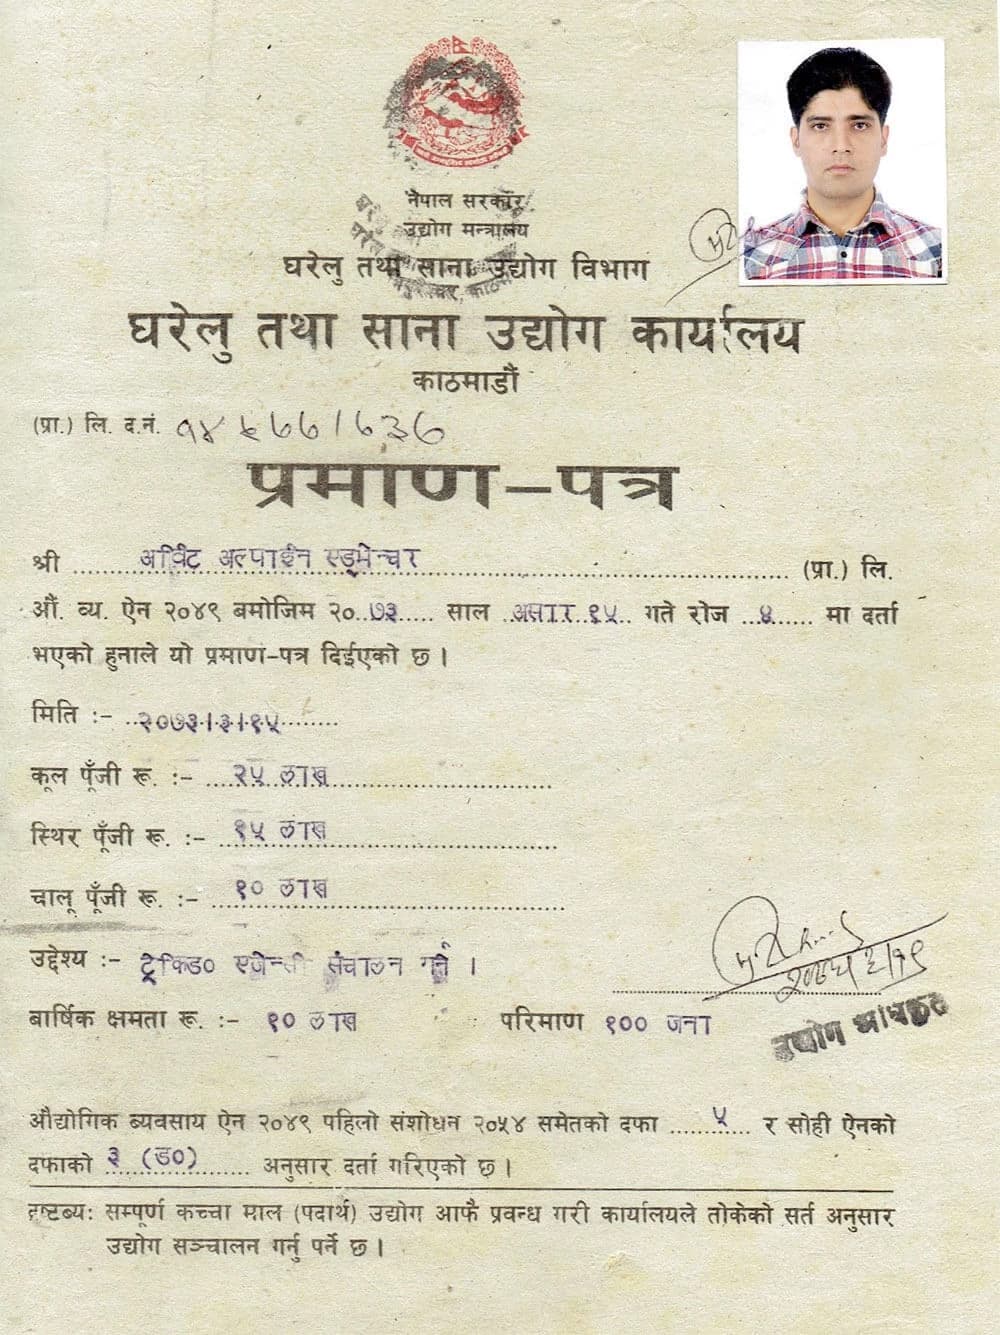 नेपाल सरकार
उद्योग मन्त्रालय
घरेलु तथा साना उद्योग विभाग
घरेलु तथा साना उद्योग कार्यालय
काठमाडौं
(प्रा.) लि. द.नं.
प्रमाण-पत्र
श्री अर्विट अल्पाईन एड्भेन्चर (प्रा.) लि.
औं. व्य. ऐन २०४९ बमोजिम २०७३ साल असार १५ गते रोज ४ मा दर्ता
भएको हुनाले यो प्रमाण-पत्र दिईएको छ ।
मिति :- २०७३।३।१५
कूल पूँजी रू. :- २५ लाख
स्थिर पूँजी रू. :- १५ लाख
चालू पूँजी रू. :- १० लाख
उद्देश्य :- ट्रेकिङ० एजेन्सी संचालन गर्ने ।
बार्षिक क्षमता रू. :- १० लाख परिमाण १०० जना
उद्योग अधिकृत
औद्योगिक ब्यवसाय ऐन २०४९ पहिलो संशोधन २०५४ समेतको दफा ५ र सोही ऐनको
दफाको ३ (ङ०) अनुसार दर्ता गरिएको छ ।
द्रष्टब्य: सम्पूर्ण कच्चा माल (पदार्थ) उद्योग आफै प्रवन्ध गरी कार्यालयले तोकेको सर्त अनुसार
उद्योग सञ्चालन गर्नु पर्ने छ ।